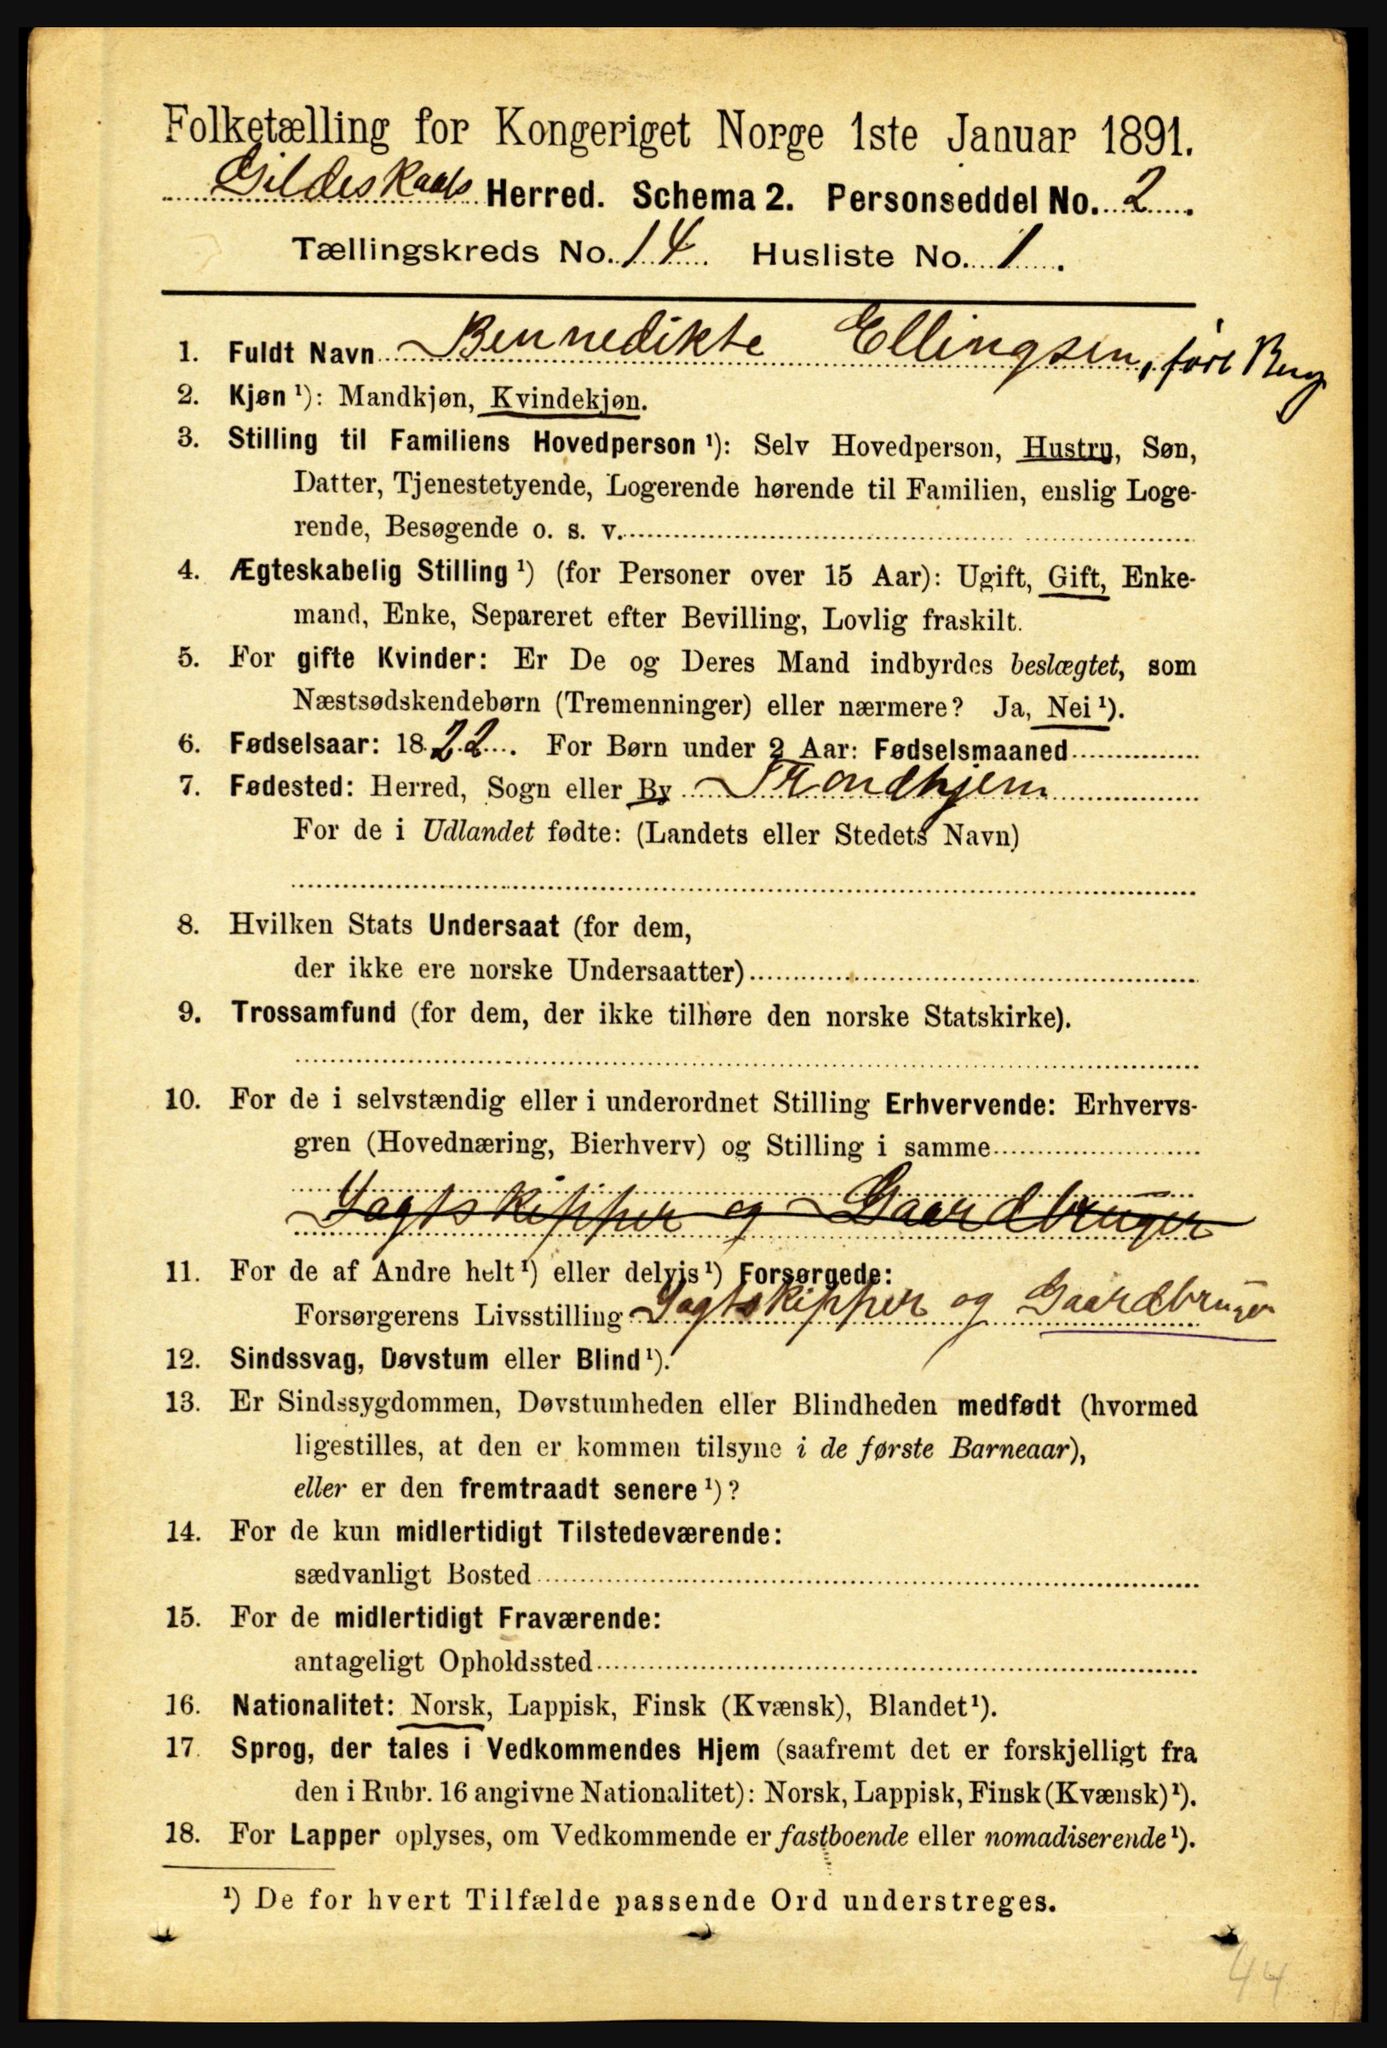 Folketælling for Kongeriget Norge 1ste Januar 1891.
Gildeskaals Herred. Schema 2. Personseddel No. 2.
Tællingskreds No. 14. Husliste No. 1.
1. Fuldt Navn Bennedikte Ellingsen,
2. Kjøn ¹): Mandkjøn, Kvindekjøn.
3. Stilling til Familiens Hovedperson ¹): Selv Hovedperson, Hustru, Søn,
Datter, Tjenestetyende, Logerende hørende til Familien, enslig Loge-
rende, Besøgende o. s. v.
4. Ægteskabelig Stilling ¹) (for Personer over 15 Aar): Ugift, Gift, Enke-
mand, Enke, Separeret efter Bevilling, Lovlig fraskilt.
5. For gifte Kvinder: Er De og Deres Mand indbyrdes beslægtet, som
Næstsødskendebørn (Tremenninger) eller nærmere? Ja, Nei ¹).
6. Fødselsaar: 1822. For Børn under 2 Aar: Fødselsmaaned
7. Fødested: Herred, Sogn eller By Trondhjem
For de i Udlandet fødte: (Landets eller Stedets Navn)
8. Hvilken Stats Undersaat (for dem,
der ikke ere norske Undersaatter)
9. Trossamfund (for dem, der ikke tilhøre den norske Statskirke).
10. For de i selvstændig eller i underordnet Stilling Erhvervende: Erhvervs-
gren (Hovednæring, Bierhverv) og Stilling i samme
Jagtskipper og Gaardbruger
11. For de af Andre helt ¹) eller delvis ¹) Forsørgede:
Forsørgerens Livsstilling Jagtskipper og Gaardbruger
12. Sindssvag, Døvstum eller Blind ¹).
13. Er Sindssygdommen, Døvstumheden eller Blindheden medfødt (hvormed
ligestilles, at den er kommen tilsyne i de første Barneaar),
eller er den fremtraadt senere ¹)?
14. For de kun midlertidigt Tilstedeværende:
sædvanligt Bosted
15. For de midlertidigt Fraværende:
antageligt Opholdssted
16. Nationalitet: Norsk, Lappisk, Finsk (Kvænsk), Blandet ¹).
17. Sprog, der tales i Vedkommendes Hjem (saafremt det er forskjelligt fra
den i Rubr. 16 angivne Nationalitet): Norsk, Lappisk, Finsk (Kvænsk) ¹).
18. For Lapper oplyses, om Vedkommende er fastboende eller nomadiserende ¹).
¹) De for hvert Tilfælde passende Ord understreges.
44